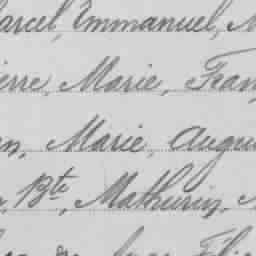 arcel, Emmanuel,
ierre, Marie, Fran
n, Marie, Augu
Bte, Mathurin,